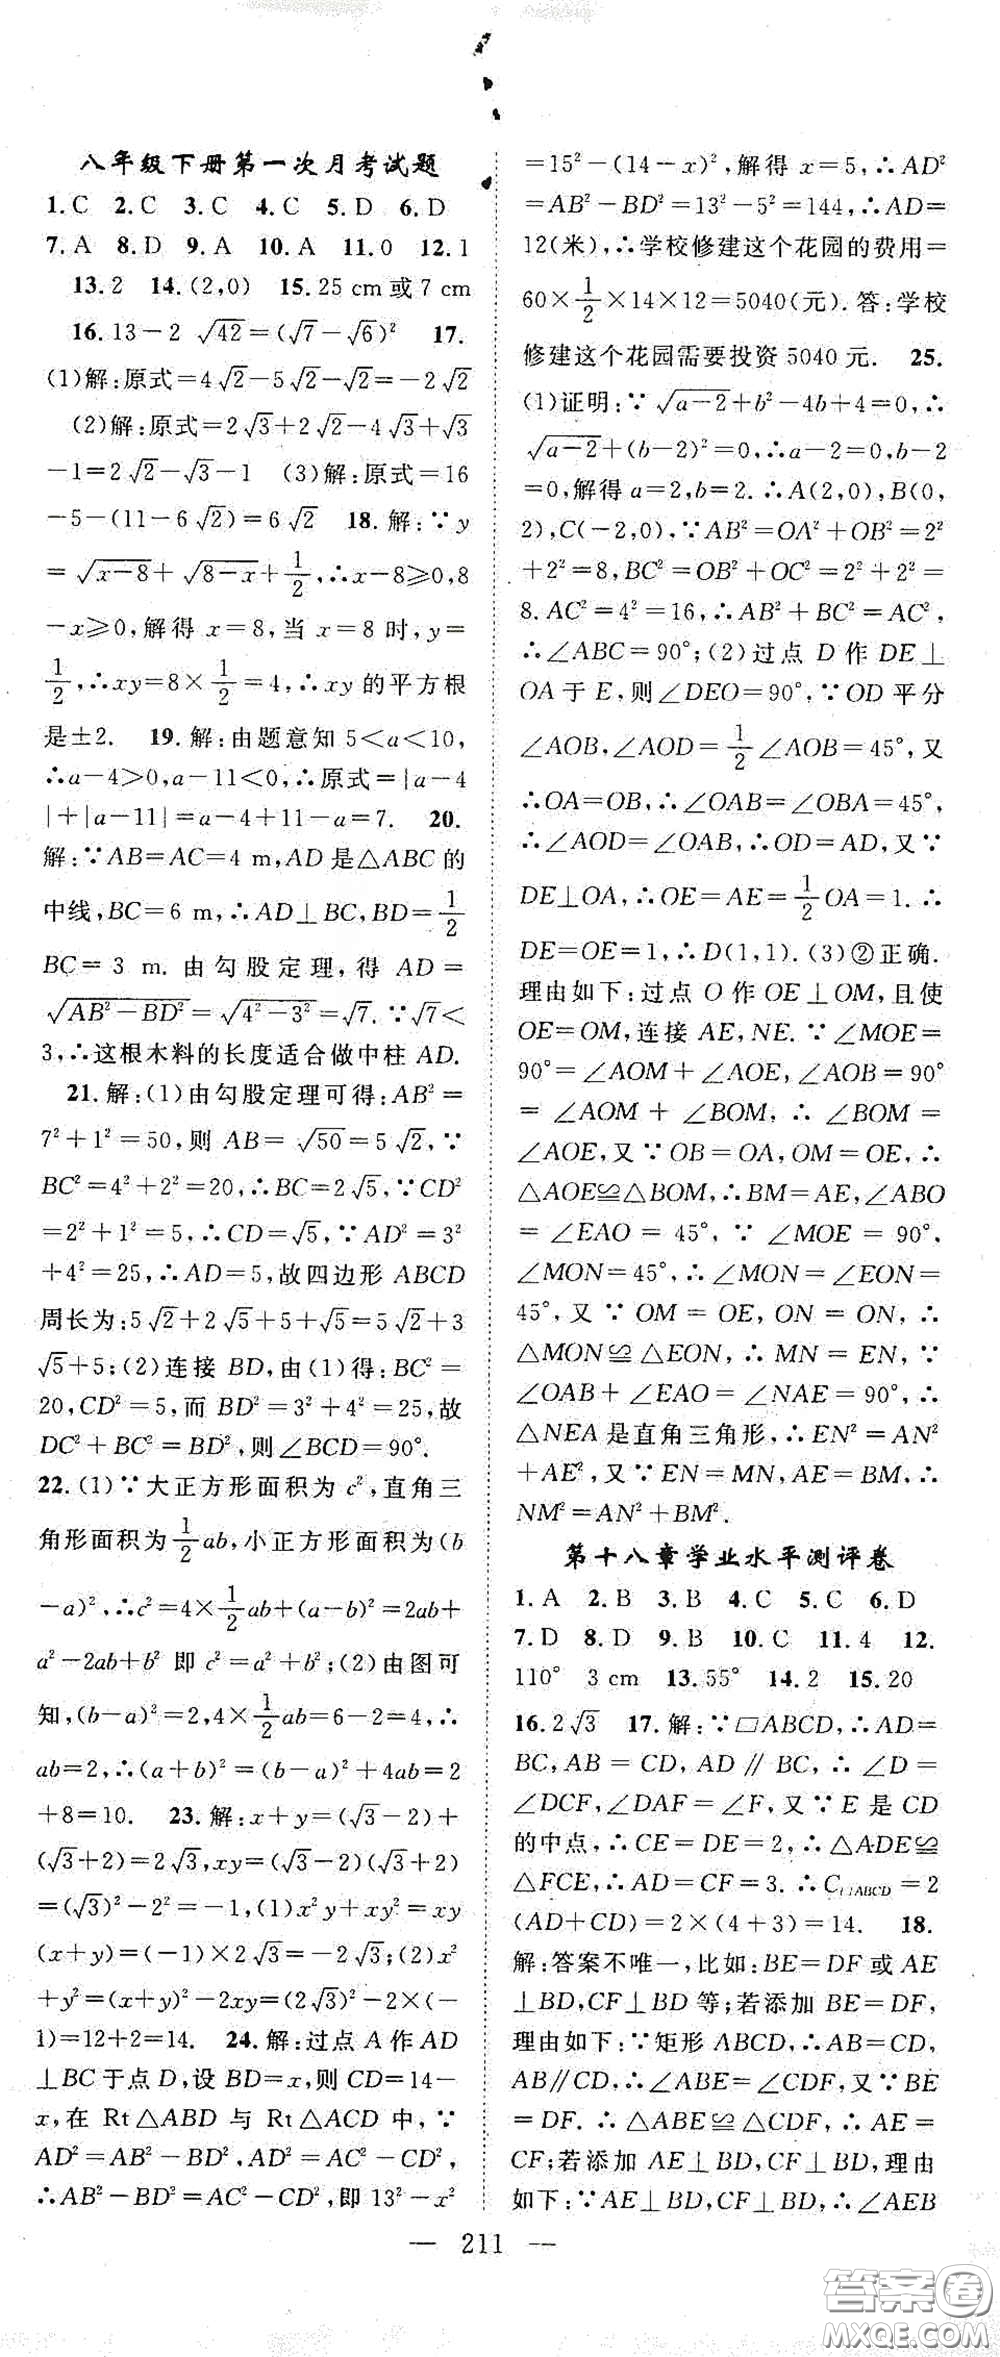 八年级下册第一次月考试题
1.C 2.C 3.C 4.C 5.D 6.D
7.A 8.D 9.A 10.A 11.0 12.1
13.2 14.(2,0) 15.25 cm或7 cm
16.13-2√42=(√7-√6)² 17.
(1)解:原式=4√2-5√2-√2=-2√2
(2)解:原式=2√3+2√2-4√3+√3
-1=2√2-√3-1 (3)解:原式=16
-5-(11-6√2)=6√2 18.解:∵y
=√(x-8)+√(8-x)+1/2,∴x-8≥0,8
-x≥0,解得x=8,当x=8时,y=
1/2,∴xy=8×1/2=4,∴xy的平方根
是±2. 19.解:由题意知5<a<10,
∴a-4>0,a-11<0,∴原式=|a-4
|+|a-11|=a-4+11-a=7. 20.
解:∵AB=AC=4 m,AD是△ABC的
中线,BC=6 m,∴AD⊥BC,BD=1/2
BC=3 m.由勾股定理,得AD=
√(AB²-BD²)=√(4²-3²)=√7.∵√7<
3,∴这根木料的长度适合做中柱AD.
21.解:(1)由勾股定理可得:AB²=
7²+1²=50,则AB=√50=5√2,∵
BC²=4²+2²=20,∴BC=2√5,∵CD²
=2²+1²=5,∴CD=√5,∵AD²=3²
+4²=25,∴AD=5,故四边形ABCD
周长为:5√2+2√5+5+√5=5√2+3
√5+5;(2)连接BD,由(1)得:BC²=
20,CD²=5,而BD²=3²+4²=25,故
DC²+BC²=BD²,则∠BCD=90°.
22.(1)∵大正方形面积为c²,直角三
角形面积为1/2ab,小正方形面积为(b
-a)²,∴c²=4×1/2ab+(a-b)²=2ab+
a²-2ab+b²即c²=a²+b²;(2)由图可
知,(b-a)²=2,4×1/2ab=6-2=4,∴
ab=2,∴(a+b)²=(b-a)²+4ab=2
+8=10. 23.解:x+y=(√3-2)+
(√3+2)=2√3,xy=(√3-2)(√3+2)
=(√3)²-2²=-1,(1)x²y+xy²=xy
(x+y)=(-1)×2√3=-2√3;(2)x²
+y²=(x+y)²-2xy=(2√3)²-2×(-
1)=12+2=14. 24.解:过点A作AD
⊥BC于点D,设BD=x,则CD=14-
x,在Rt△ABD与Rt△ACD中,∵
AD²=AB²-BD²,AD²=AC²-CD²,
∴AB²-BD²=AC²-CD²,即13²-x²
=15²-(14-x)²,解得x=5,∴AD²
=AB²-BD²=13²-5²=144,∴AD=
12(米),∴学校修建这个花园的费用=
60×1/2×14×12=5040(元).答:学校
修建这个花园需要投资5040元. 25.
(1)证明:∵√(a-2)+b²-4b+4=0,∴
√(a-2)+(b-2)²=0,∴a-2=0,b-2
=0,解得a=2,b=2.∴A(2,0),B(0,
2),C(-2,0),∵AB²=OA²+OB²=2²
+2²=8,BC²=OB²+OC²=2²+2²=
8.AC²=4²=16,∴AB²+BC²=AC²,
∴∠ABC=90°;(2)过点D作DE⊥
OA于E,则∠DEO=90°,∵OD平分
∠AOB,∠AOD=1/2∠AOB=45°,又
∴OA=OB,∴∠OAB=∠OBA=45°,
∴∠AOD=∠OAB,∴OD=AD,又∵
DE⊥OA,∴OE=AE=1/2OA=1.∴
DE=OE=1,∴D(1,1).(3)②正确.
理由如下:过点O作OE⊥OM,且使
OE=OM,连接AE,NE.∵∠MOE=
90°=∠AOM+∠AOE,∠AOB=90°
=∠AOM+∠BOM,∴∠BOM=
∠AOE,又∵OB=OA,OM=OE,∴
△AOE≌△BOM,∴BM=AE,∠ABO
=∠EAO=45°,∵∠MOE=90°,
∠MON=45°,∴∠MON=∠EON=
45°,又∵OM=OE,ON=ON,∴
△MON≌△EON,∴MN=EN,∵
∠OAB+∠EAO=∠NAE=90°,∴
△NEA是直角三角形,∴EN²=AN²
+AE²,又∵EN=MN,AE=BM,∴
NM²=AN²+BM².
第十八章学业水平测评卷
1.A 2.B 3.B 4.C 5.C 6.D
7.D 8.D 9.B 10.C 11.4 12.
110° 3 cm 13.55° 14.2 15.20
16.2√3 17.解:∵▱ABCD,∴AD=
BC,AB=CD,AD∥BC,∴∠D=
∠DCF,∠DAF=∠F,又∵E是CD
的中点,∴CE=DE=2,∴△ADE≌
△FCE,∴AD=CF=3.∴C▱ABCD=2
(AD+CD)=2×(4+3)=14. 18.
解:答案不唯一,比如:BE=DF或AE
⊥BD,CF⊥BD等;若添加BE=DF,
理由如下:∵矩形ABCD,∴AB=CD,
AB∥CD,∴∠ABE=∠CDF,又∵BE
=DF.∴△ABE≌△CDF,∴AE=
CF;若添加AE⊥BD,CF⊥BD,理由
如下:∵AE⊥BD,CF⊥BD,∴∠AEB
— 211 —
答案圈
MXQE.COM